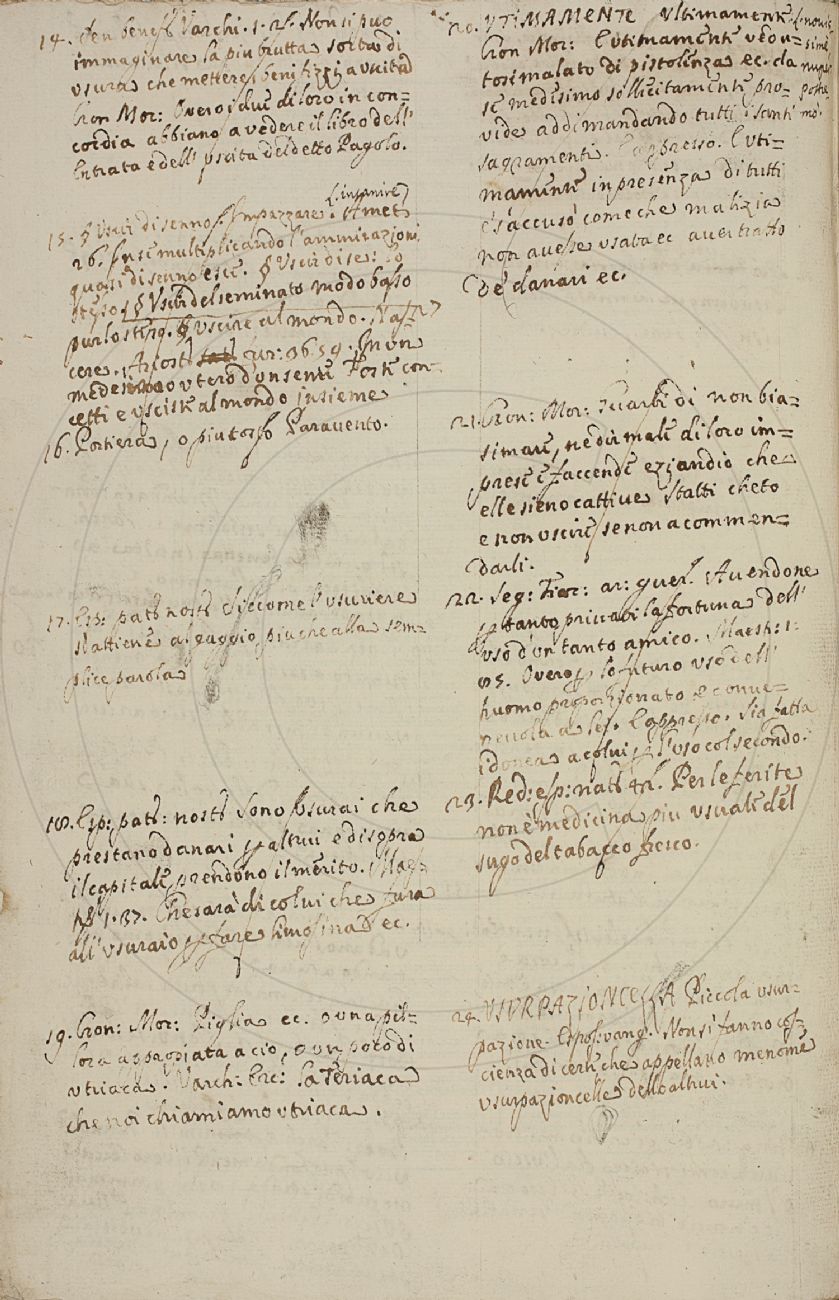 14. Sen benef. Varchi. 1. 2. Non si può
immaginare la più brutta sorta di
usura che mettere i benifizzi a uscita
Cron Mor: Overo i due di loro in con=
cordia abbiano a vedere il libro dell'
Entrata e dell' uscita del detto Pagolo.
15. § Uscir di senno. Impazzare. (l. insanire) Amet
26. In se multiplicando l'ammirazioni
quasi di senno esce. § Uscir di se: lo
stesso. § Uscir del seminato modo basso
pur lo stesso. § Uscire al mondo. Nas=
cere. Ariost. fur: 36. 59. In un
medesimo utero d'un seme foste con=
cetti e usciste al mondo insieme
16. Portiera, o piutosto Paravento.
17. Esp: patr nostr Siccome l'usuriere
s'attiene al gaggio più che alla sem=
plice parola
18. Esp: patr: nostr Sono usurai che
prestano danari p altrui e di sopra
il capitale prendono il merito. Maes.
1. 37. Che sarà di colui che fura
all' usuraio p fare limosina ec.
19. Cron: Mor: Piglia ec. o una pil=
lora appropiata a ciò, o un poco di
utriaca. Varch: Erc: la Teriaca
che noi chiamiamo utriaca.
20. UTIMAMENTE Ultimamente l. novis
Cron Mor: E utimamente vedu= sime
tosi malato di pistolenza ec. da nuper
se medesimo sollecitamente pro= postre
vide addimandando tutti i santi mo.
sagramenti. E appresso. E uti=
mamente in presenza di tutti
s'accusò come che malizia
non avesse usata ec aver tratto
De danari ec.
21. Cron: Mor: Guarti di non bia=
simare, ne dir male di loro im=
prese e faccende eziandio che
elle sieno cattive Statti cheto
e non uscire se non a commen=
darli.
22. Seg: Fior: ar: guer. Avendone
p tanto privati la fortuna dell'
uso d'un tanto amico. Maestr: 1.
85. Overo p lo futuro uso dell'
huomo proporzionato e conve=
nevola a se. E appresso. Sia fatta
idonea a colui p l'uso col secondo.
23. Red: esp: nat: Per le ferite
non è medicina più usuale del
sugo del tabacco fresco.
24. USURPAZIONCELLA Piccola usur=
pazione. Espos: vang. Non si fanno cos=
cienza di certe che appellano menome
usurpazioncelle dello altrui.